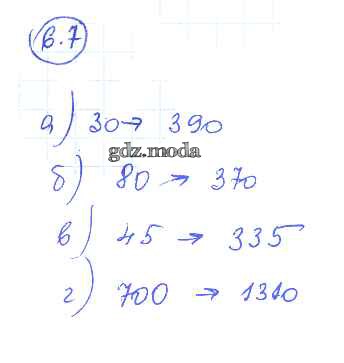 6.7
а) 30 → 390
gdz.moda
б) 80 → 370
в) 45 → 335
г) 700 → 1310